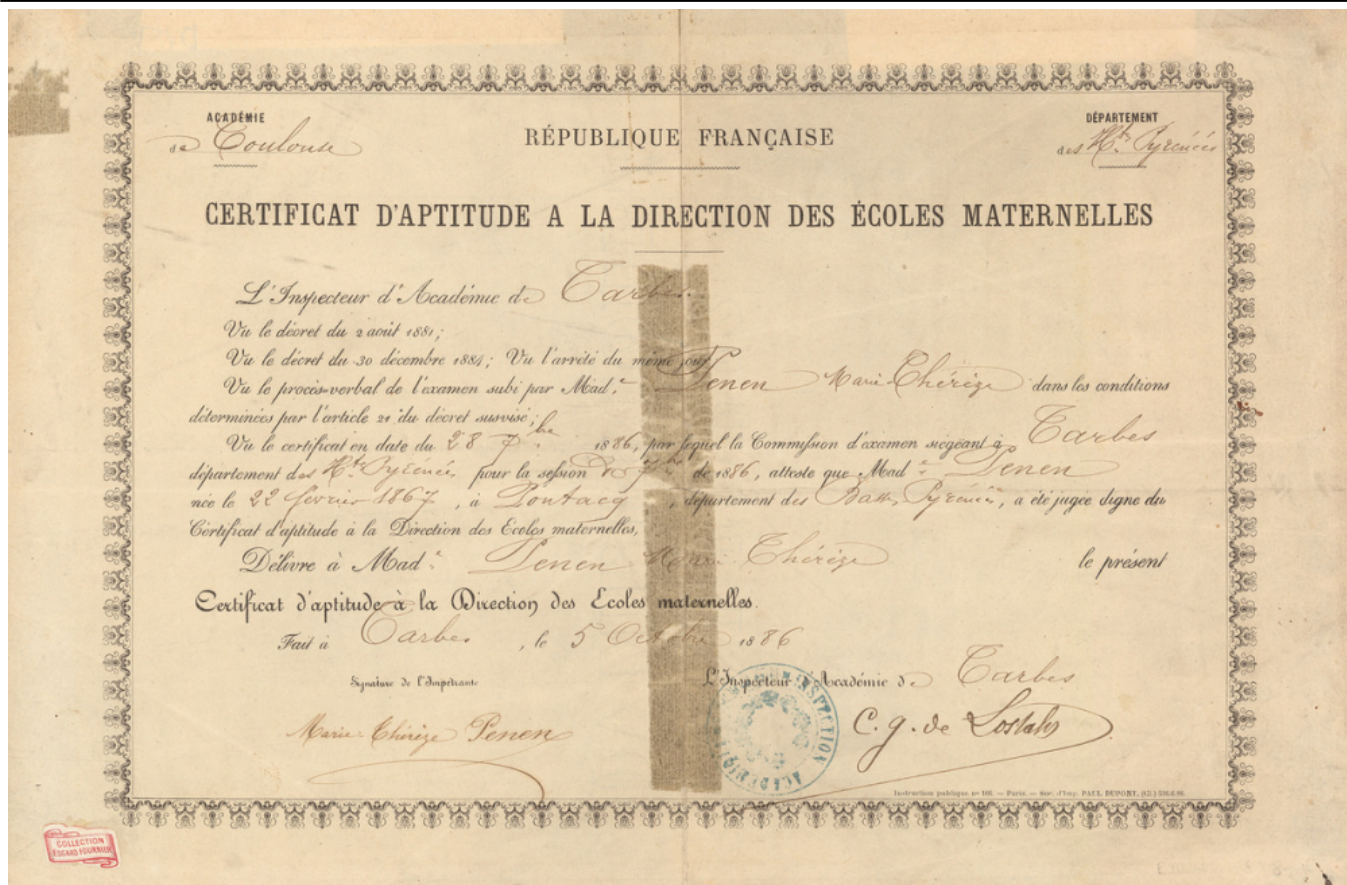 ACADÉMIE
de Toulouse
RÉPUBLIQUE FRANÇAISE
DÉPARTEMENT
des Htes Pyrénées
CERTIFICAT D'APTITUDE A LA DIRECTION DES ÉCOLES MATERNELLES
L'Inspecteur d'Académie de Tarbes
Vu le décret du 2 août 1881;
Vu le décret du 30 décembre 1884; Vu l'arrêté du même jour
Vu le procès-verbal de l'examen subi par Mad.e Penen Marie-Thérèze dans les conditions
déterminées par l'article 21 du décret susvisé;
Vu le certificat en date du 28 7bre 1886, par lequel la Commission d'examen siégeant à Tarbes
département des Htes Pyrénées pour la session de 7bre de 1886, atteste que Mad.e Penen
née le 22 février 1867, à Pontacq, département des Basses Pyrénées, a été jugée digne du
Certificat d'aptitude à la Direction des Ecoles maternelles,
Délivre à Mad.e Penen Marie Thérèze le présent
Certificat d'aptitude à la Direction des Ecoles maternelles.
Fait à Tarbes, le 5 Octobre 1886
Signature de l'Impétrante
L'Inspecteur d'Académie de Tarbes
Marie-Thérèze Penen
C. g. de Lostalo
INSPECTION ACADÉMIQUE
Instruction publique no 166. — Paris. — Soc. d'Imp. PAUL DUPONT,
COLLECTION
EDGARD FOURNIER